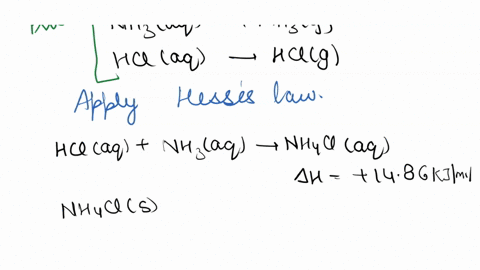 NH₃(aq)
HCl (aq) → HCl(g)
Apply Hess's law.
HCl(aq) + NH₃(aq) → NH₄Cl (aq)
ΔH = +14.86 KJ/mol
NH₄Cl(s)